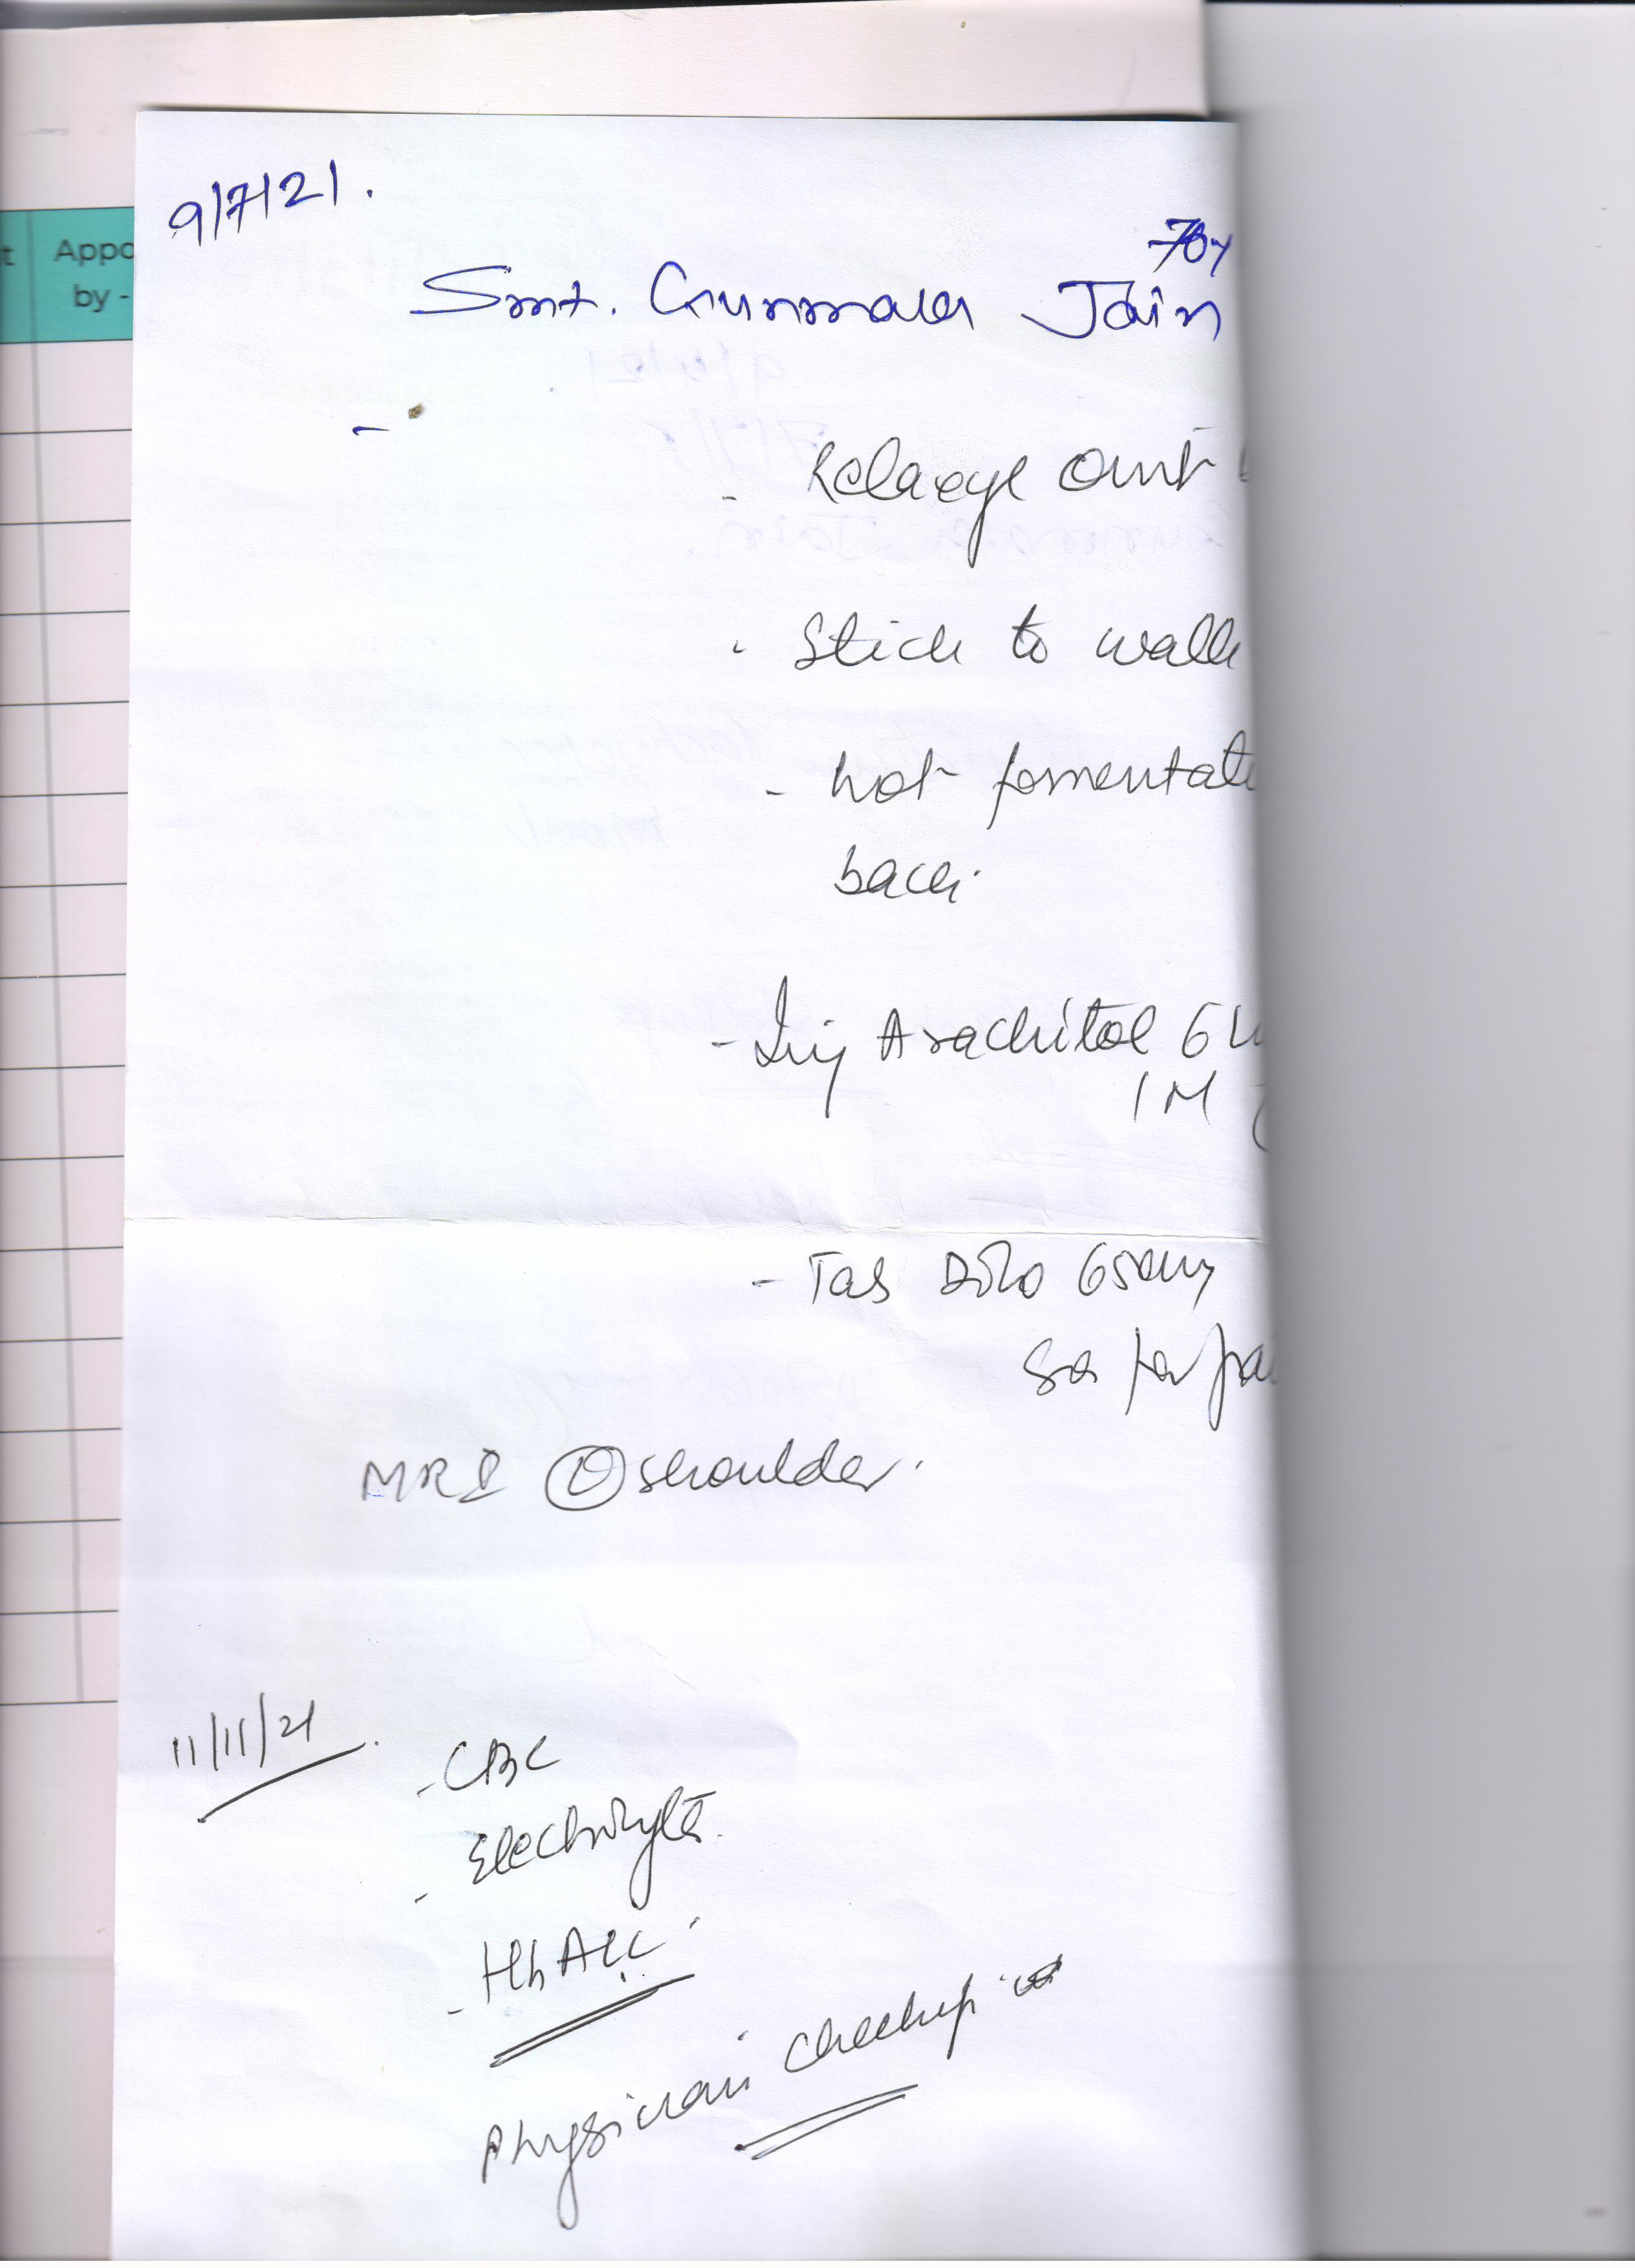 9/7/21.
t Appo
by -
70y
Smt. Gunmala Jain
-
- Relaxyl Oint
- Stick to walk
- hot fomentati
back.
- Inj Arachitol 6L
IM
- Tab Dolo 650mg
sos for pai
MRI (L) shoulder.
11/11/21.
- CBC
- Electrolytes.
- HbA1c
Physician checkup